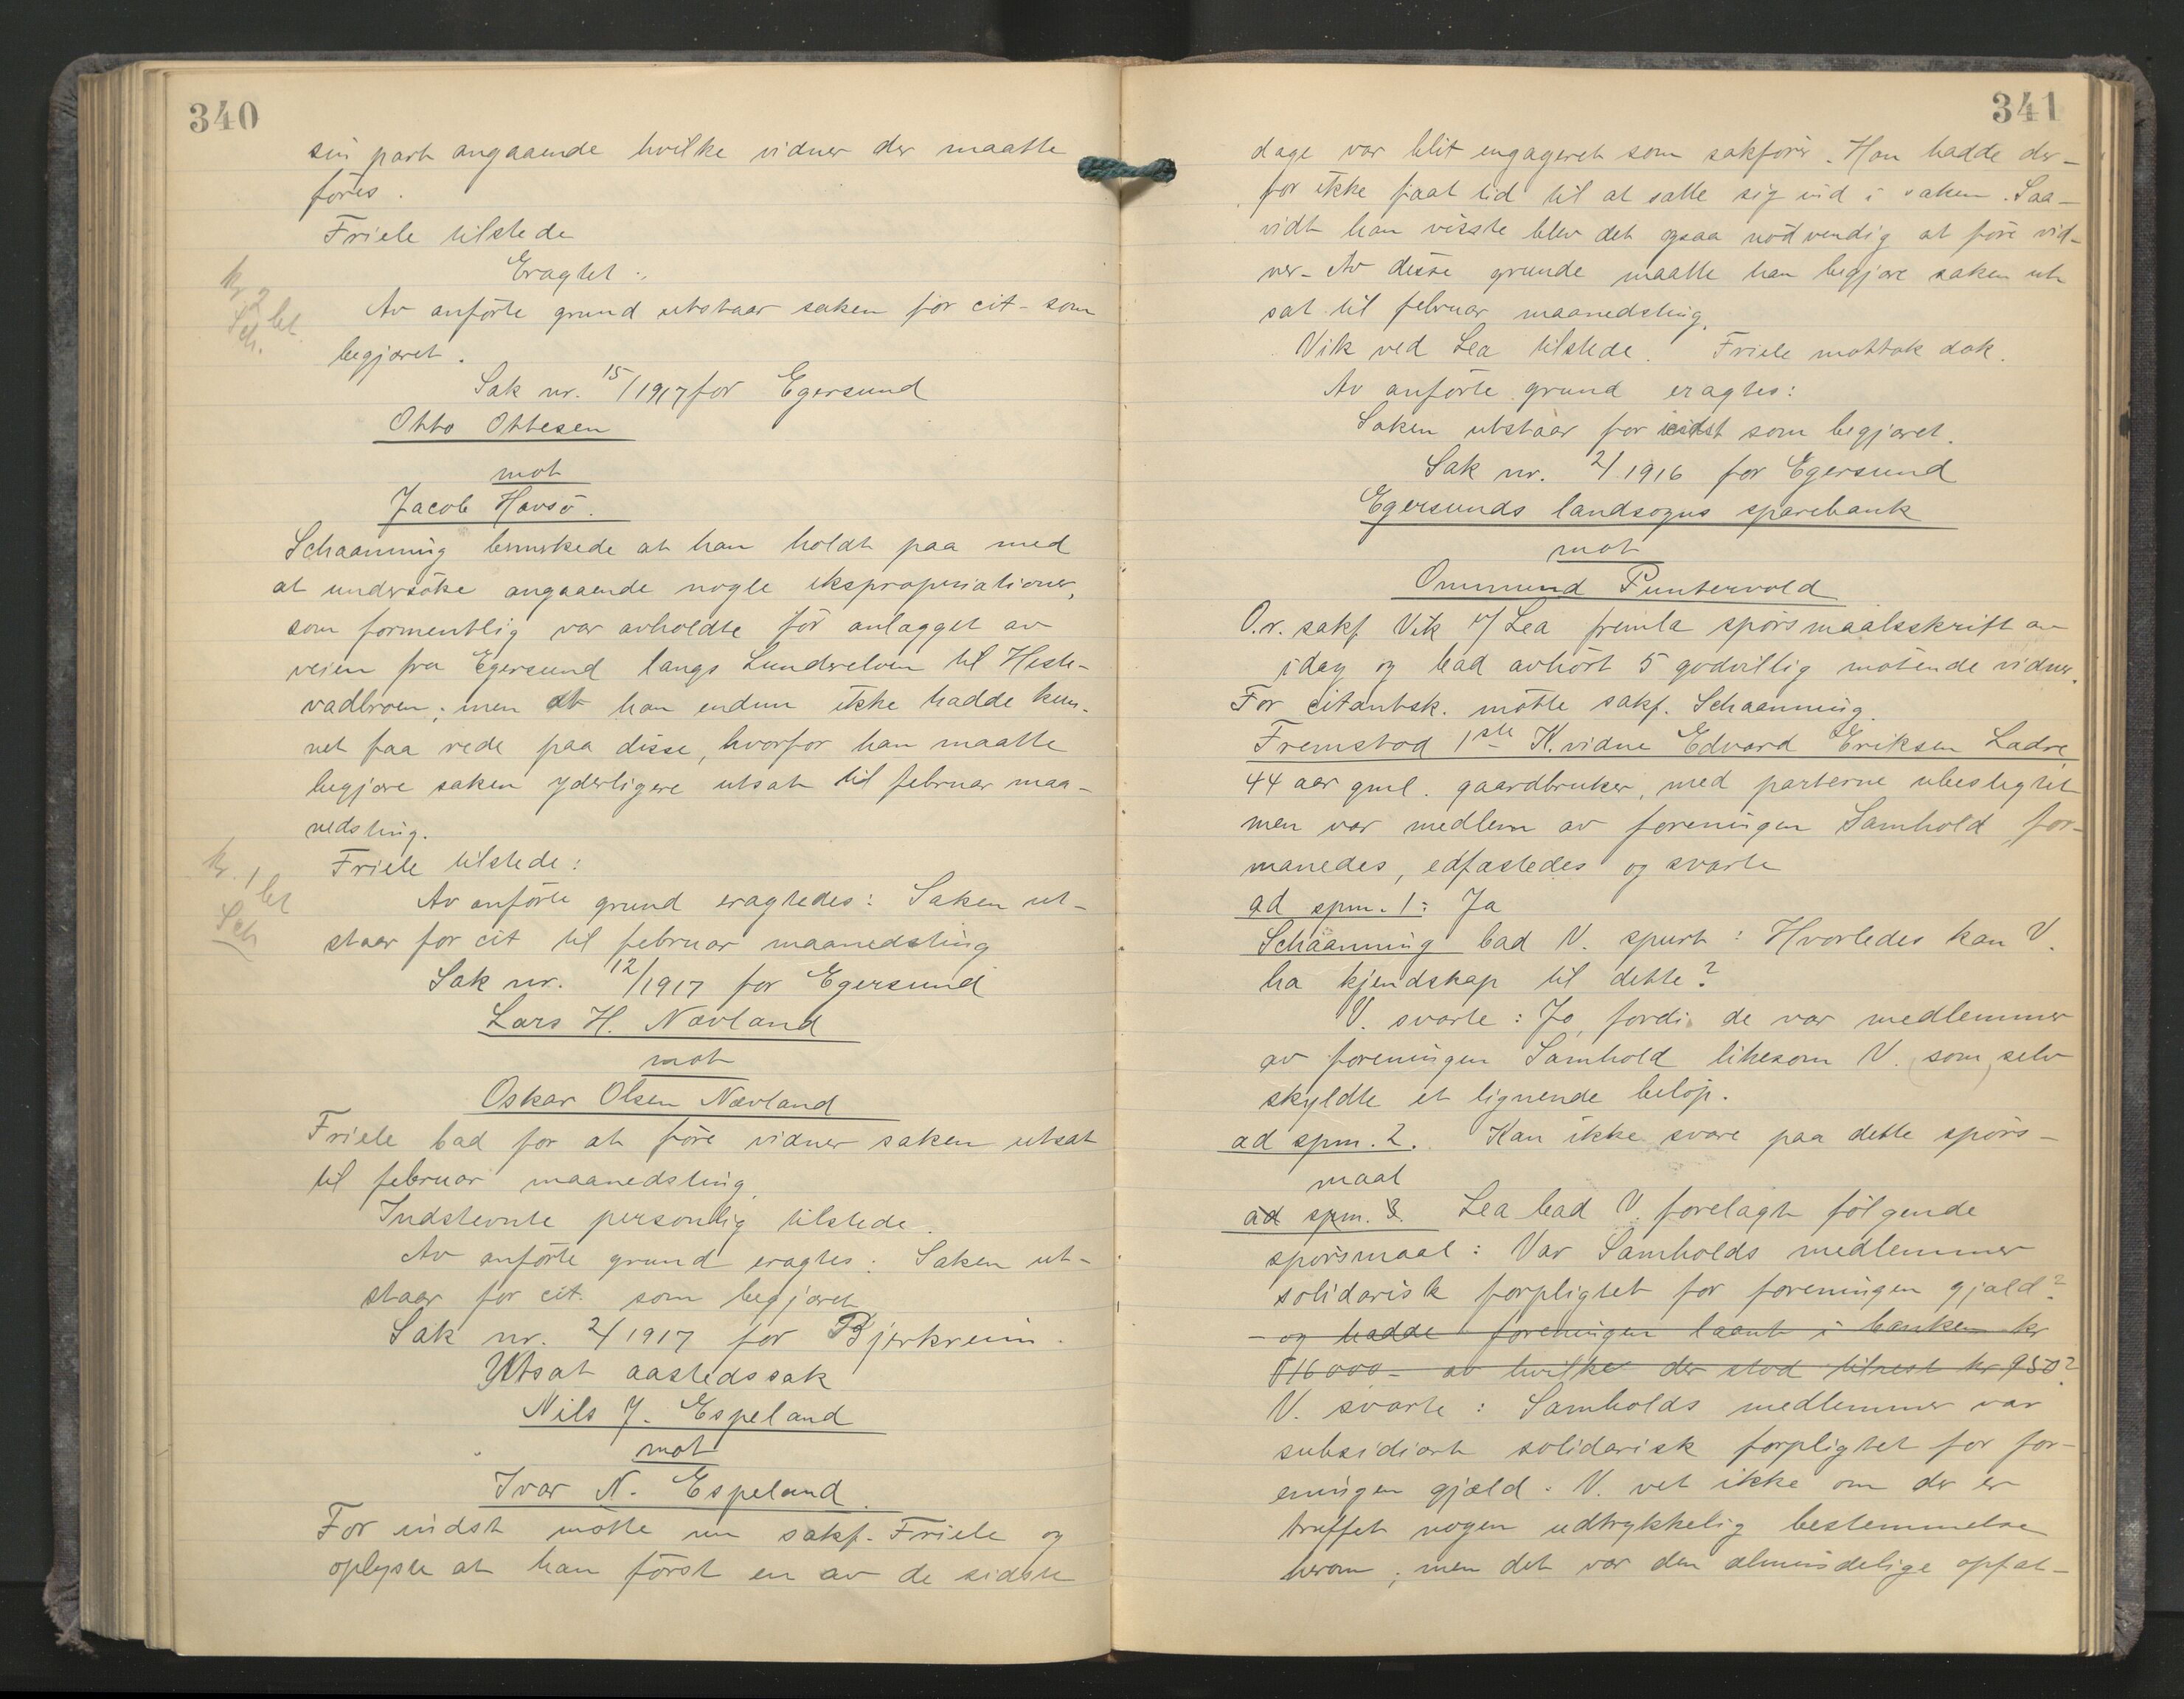 340
sin part angaaende hvilke vidner der maatte
føres.
Friele tilstede
Eragtet:
kr 2 bet.
Sch.
Av anførte grund utstaar saken for cit - som
begjæret.
Sak nr. 15/1917 for Egersund
Otto Ottesen
mot
Jacob Havsø.
Schaanning bemerkede at han holdt paa med
at undersøke angaaende nogle ekspropriationer,
som formentlig var avholdte før anlægget av
veien fra Egersund langs Lundeelven til Heste-
vadbroen; men at han endnu ikke hadde kun-
net faa rede paa disse, hvorfor han maatte
begjære saken yderligere utsat til februar maa-
nedsting.
kr. 1 bet
Sch
Friele tilstede:
Av anførte grund eragtedes: Saken ut-
staar for cit til februar maanedsting
Sak nr. 12/1917 for Egersund
Lars H. Nævland
mot
Oskar Olsen Nævland
Friele bad for at føre vidner saken utsat
til februar maanedsting.
Indstevnte personlig tilstede.
Av anførte grund eragtes: Saken ut-
staar for cit. som begjæret
Sak nr. 2/1917 for Bjerkreim.
Utsat aastedssak
Nils J. Espeland
mot
Ivar N. Espeland.
For indst møtte nu sakf. Friele og
oplyste at han først en av de sidste
341
dage var blit engageret som sakfører. Han hadde der-
for ikke faat tid til at sætte sig ind i saken. Saa-
vidt han visste blev det ogsaa nødvendig at føre vid-
ner. Av disse grunde maatte han begjære saken ut
sat til februar maanedsting.
Vik ved Lea tilstede. Friele mottok dok.
Av anførte grund eragtes:
Saken utstaar for indst som begjæret.
Sak nr. 2/1916 for Egersund
Egersunds landsogns sparebank
mot
Ommund Puntervold
O.r. sakf. Vik v/ Lea fremla spørsmaalsskrift av
idag og bad avhørt 5 godvillig møtende vidner.
For citantsk. møtte sakf. Schaanning.
Fremstod 1ste K. vidne Edvard Eriksen Ladre
44 aar gml. gaardbruker, med parterne ubeslegtet
men var medlem av foreningen Samhold, for-
manedes, edfæstedes og svarte
ad spm. 1: Ja
Schaanning bad V. spurt: Hvorledes kan V.
ha kjendskap til dette?
V. svarte: Jo, fordi de var medlemmer
av foreningen Samhold likesom V. (som) selv
skyldte et lignende beløp.
ad spm. 2. Kan ikke svare paa dette spørs-
maal
ad spm. 3. Lea bad V. forelagt følgende
spørsmaal: Var Samholds medlemmer
solidarisk forpligtet for foreningen gjæld?
- og hadde foreningen laant i banken kr
16000 - av hvilke der stod tilrest kr 950?
V. svarte: Samholds medlemmer var
subsidiært solidarisk forpligtet for for-
eningen gjæld. V. vet ikke om der er
truffet nogen udtrykkelig bestemmelse
herom; men det var den almindelige opfat-